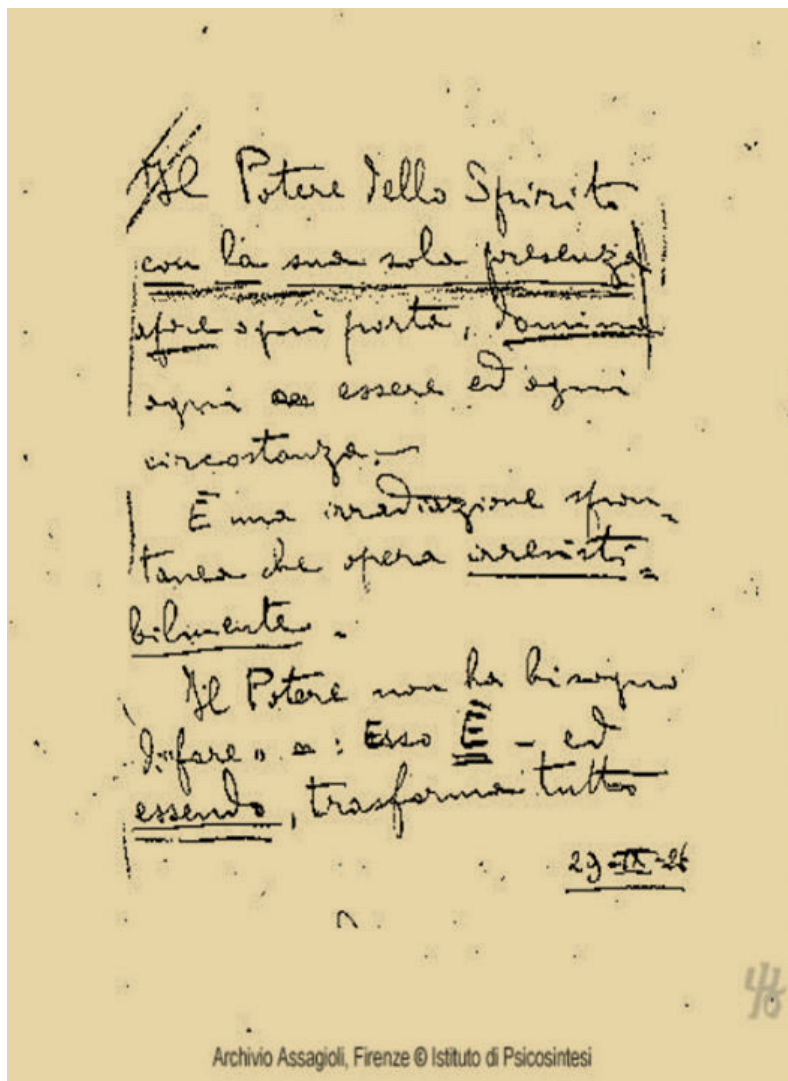 Il Potere dello Spirito
con la sua sola presenza
apre ogni porta, domina
ogni essere ed ogni
circostanza.—
È una irradiazione spon-
tanea che opera irresisti-
bilmente.
Il Potere non ha bisogno
di "fare" : Esso È — ed
essendo, trasforma tutto
29-IX-26
Archivio Assagioli, Firenze © Istituto di Psicosintesi